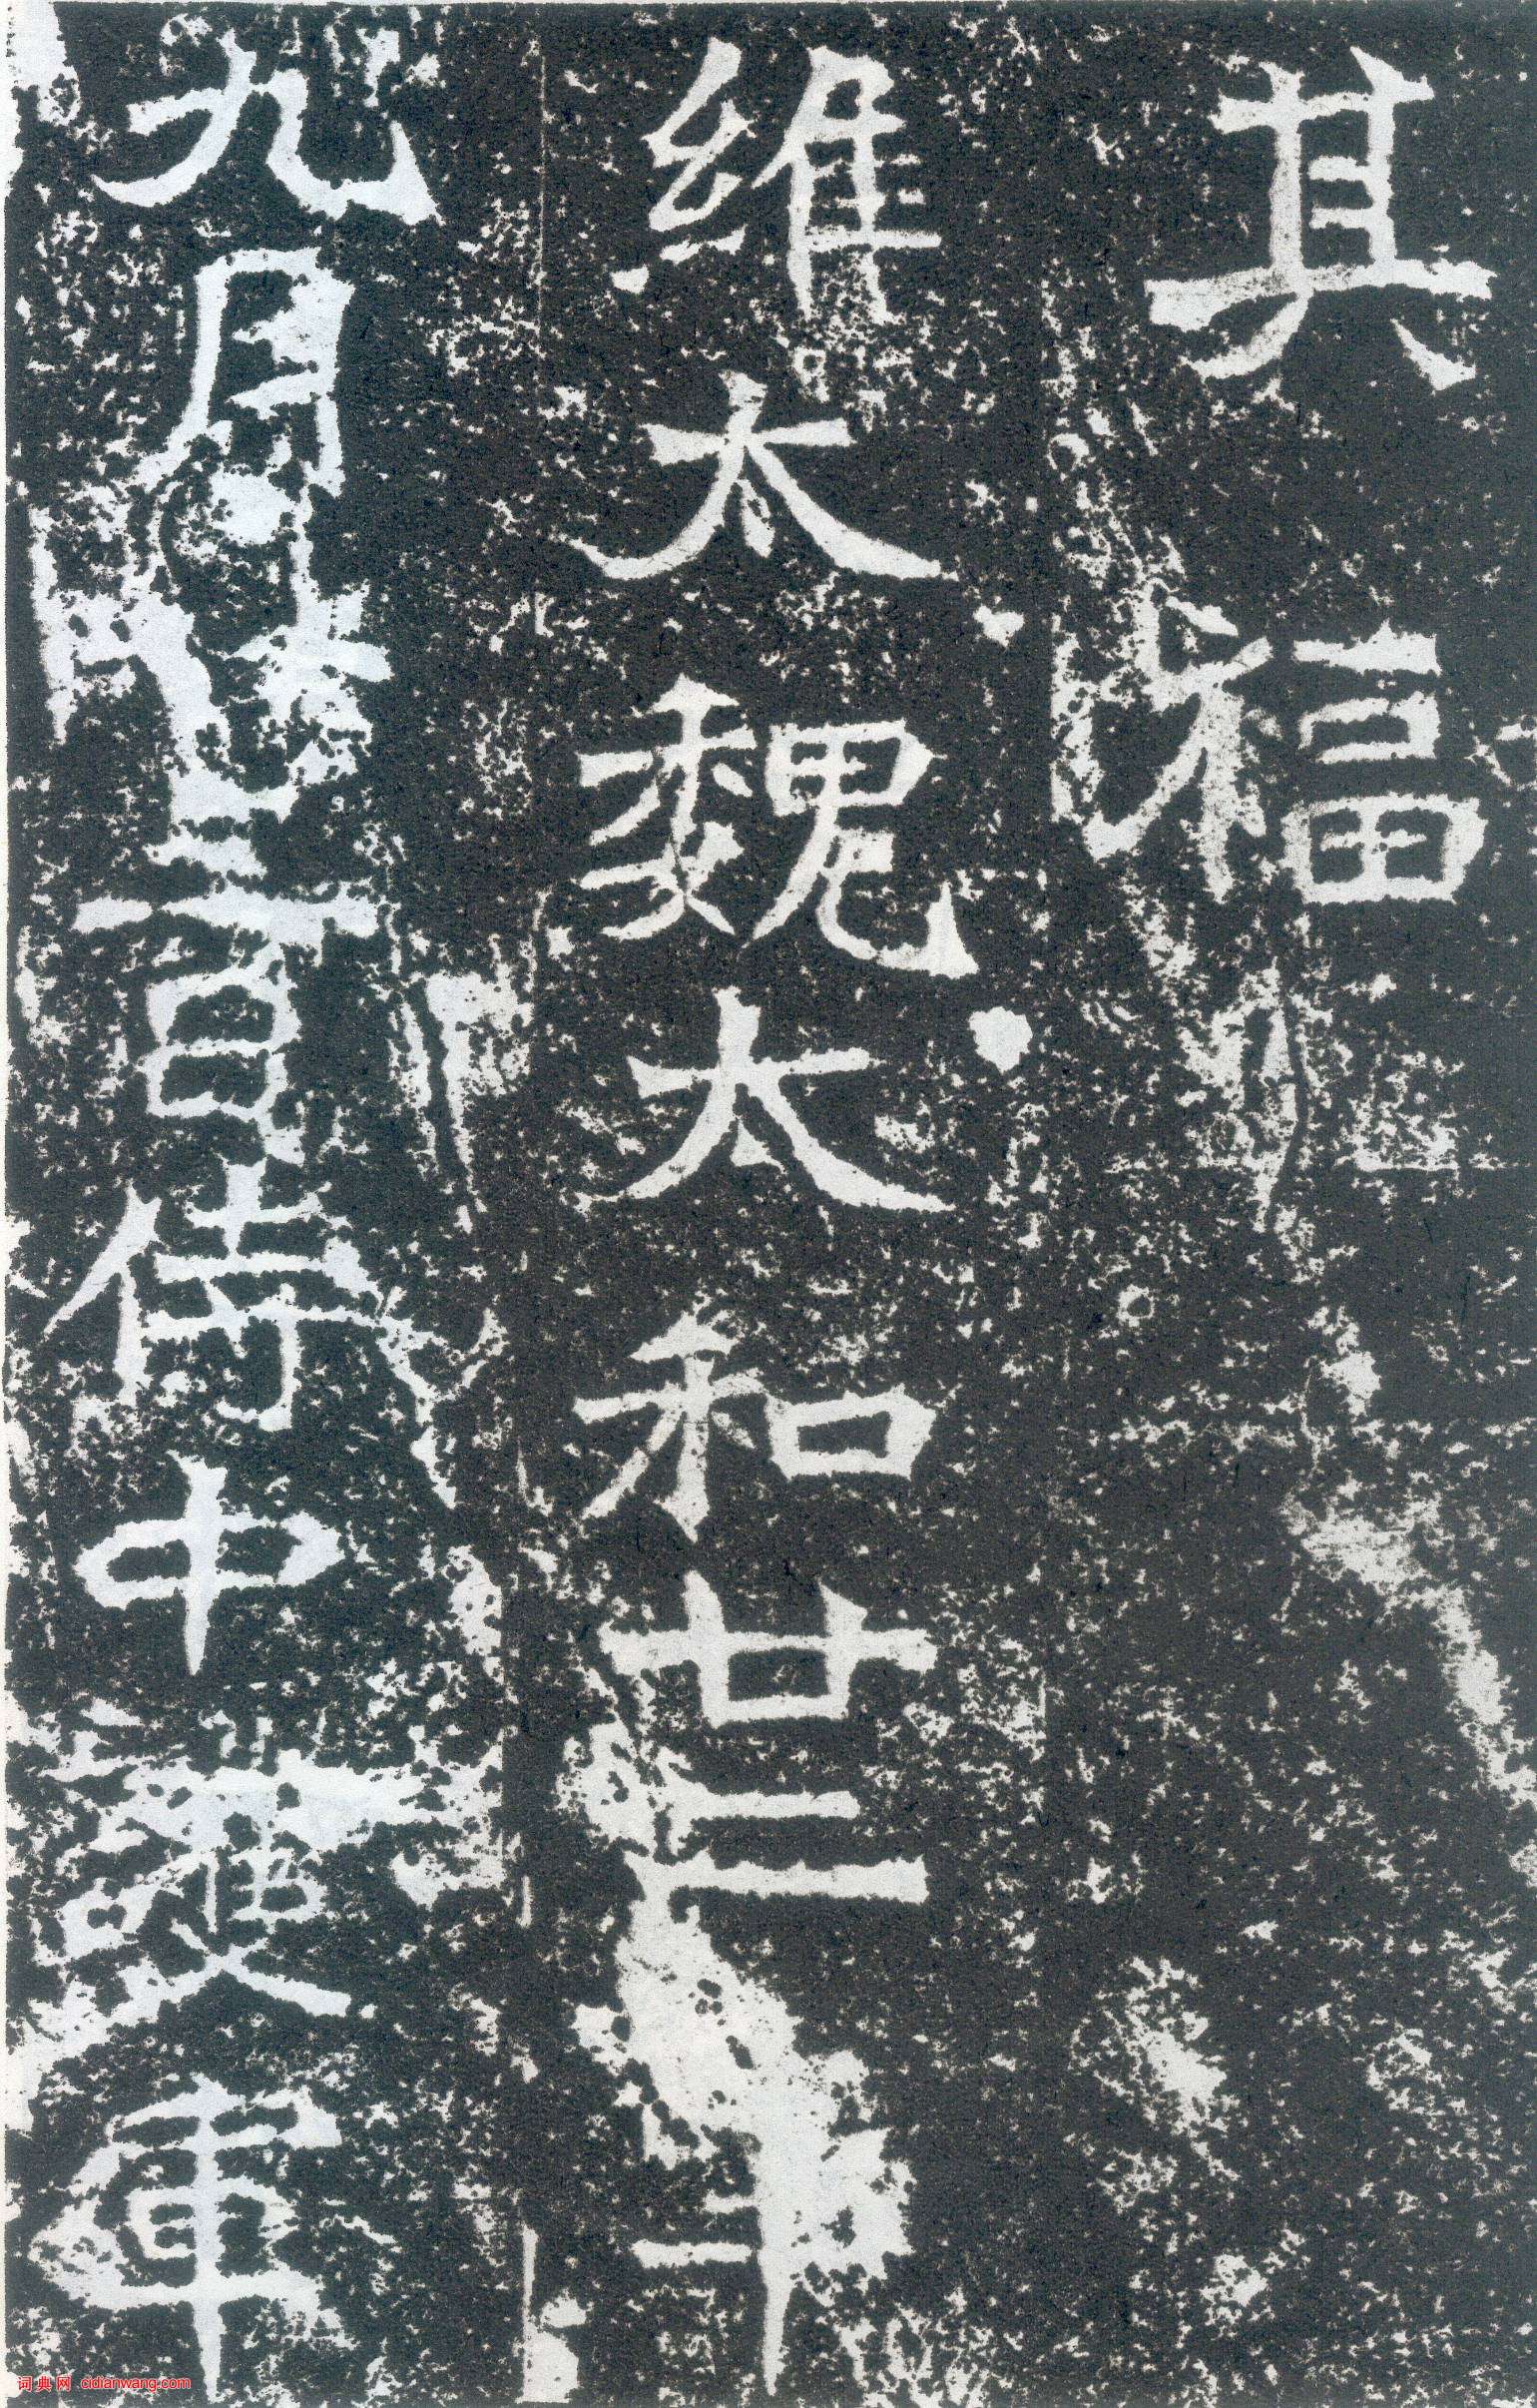 其福
維太魏太和廿二年
九月廿三日侍中護軍
词典网 cidianwang.com